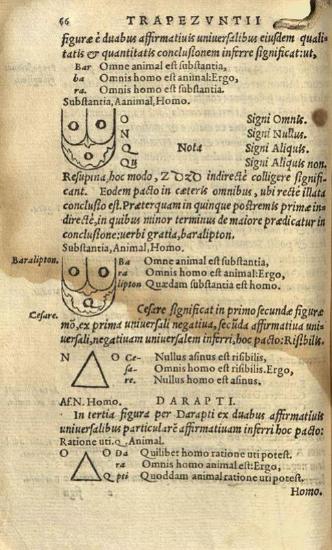 66 TRAPEZVNTII
figuræ è duabus affirmatiuis vniuersalibus eiusdem quali-
tatis & quantitatis conclusionem inferre significat: ut,
Bar Omne animal est substantia,
ba Omnis homo est animal: Ergo,
ra. Omnis homo est substantia.
Substantia, Aanimal, Homo.
O Signi Omnis.
N Signi Nullus.
Q Nota Signi Aliquis.
Qũ Signi Aliquis non.
Resupina, hoc modo, indirectè colligere signifi-
cant. Eodem pacto in cæteris omnibus, ubi rectè illata
conclusio est. Præterquam in quinque postremis primæ in-
directè, in quibus minor terminus de maiore prædicatur in
conclusione: uerbi gratia, baralipton.
Substantia, Animal, Homo.
Baralipton.
Ba Omne animal est substantia,
ra Omnis homo est animal: Ergo,
lipton Quædam substantia est homo.
Cesare significat in primo secundæ figuræ
Cesare.
mō, ex prima uniuersali negatiua, secūda affirmatiua uni-
uersali, negatiuam inferri, hoc pacto: Risibilis.
N O Ce- Nullus asinus est risibilis,
sa- Omnis homo est risibilis. Ergo,
re. Nullus homo est asinus,
Asin. Homo. DARAPTI.
In tertia figura per Darapti ex duabus affirmatiuis
uniuersalibus particularē affirmatiuam inferri hoc pacto:
Ratione uti. Q Animal.
O O Da Quilibet homo ratione uti potest.
ra Omnis homo animal est: Ergo,
Q pti Quoddam animal ratione uti potest.
Homo.